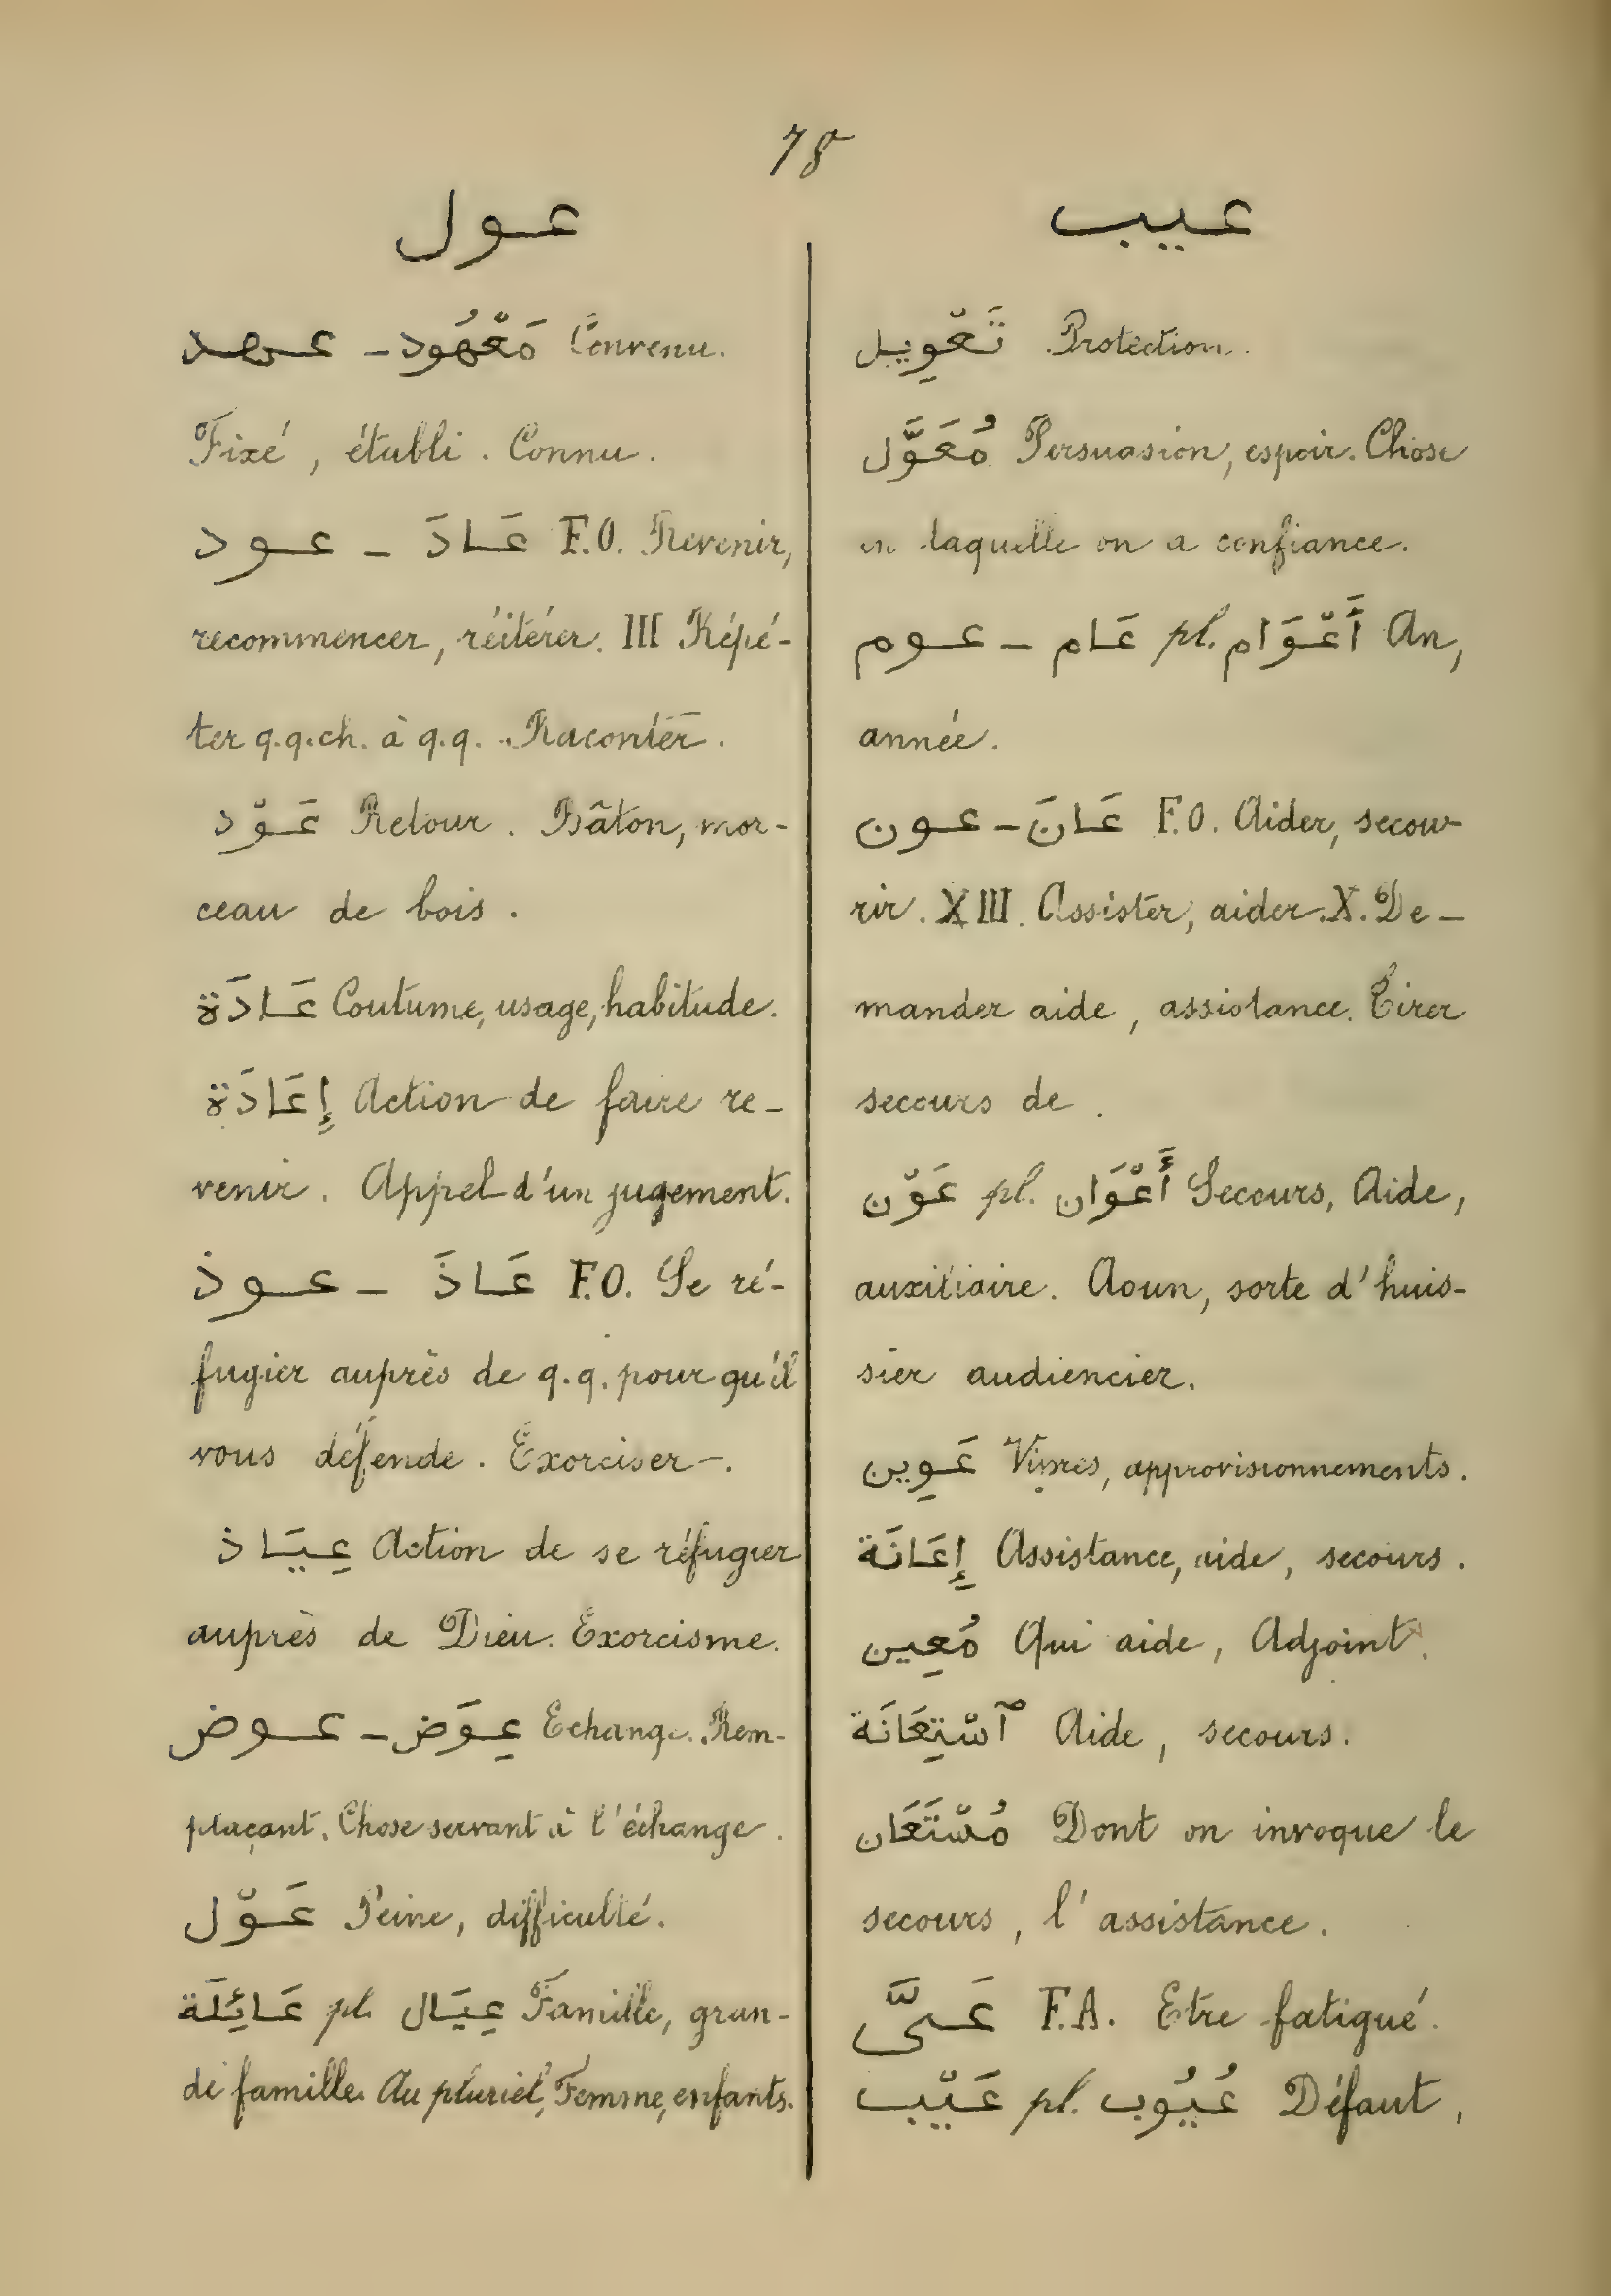 78
عول
عهد - مَعْهُود Convenu.
Fixé, établi. Connu.
عود - عَادَ F.O. Revenir,
recommencer, réitérer. III Répé-
ter q.q.ch. à q.q. Raconter.
عَوْد Retour. Bâton, mor-
ceau de bois.
عَادَة Coutume, usage, habitude.
إِعَادَة Action de faire re-
venir. Appel d'un jugement.
عوذ - عَاذَ F.O. Se ré-
fugier auprès de q.q. pour qu'il
vous défende. Exorciser.
عِيَاذ Action de se réfugier
auprès de Dieu. Exorcisme.
عوض - عِوَض Echange. Rem-
plaçant. Chose servant à l'échange.
عَوْل Peine, difficulté.
عَائِلَة pl. عِيَال Famille, gran-
de famille. Au pluriel, Femme, enfants.
عيب
تَعْوِيل Protection.
مُعَوَّل Persuasion, espoir. Chose
en laquelle on a confiance.
عوم - عَام pl. أَعْوَام An,
année.
عون - عَانَ F.O. Aider, secou-
rir. III. Assister, aider. X. De-
mander aide, assistance. Tirer
secours de.
عَوْن pl. أَعْوَان Secours, Aide,
auxiliaire. Aoun, sorte d'huis-
sier audiencier.
عَوِين Vivres, approvisionnements.
إِعَانَة Assistance, aide, secours.
مُعِين Qui aide, Adjoint.
ٱسْتِعَانَة Aide, secours.
مُسْتَعَان Dont on invoque le
secours, l'assistance.
عَىَّ F.A. Etre fatigué.
عَيْب pl. عُيُوب Défaut,